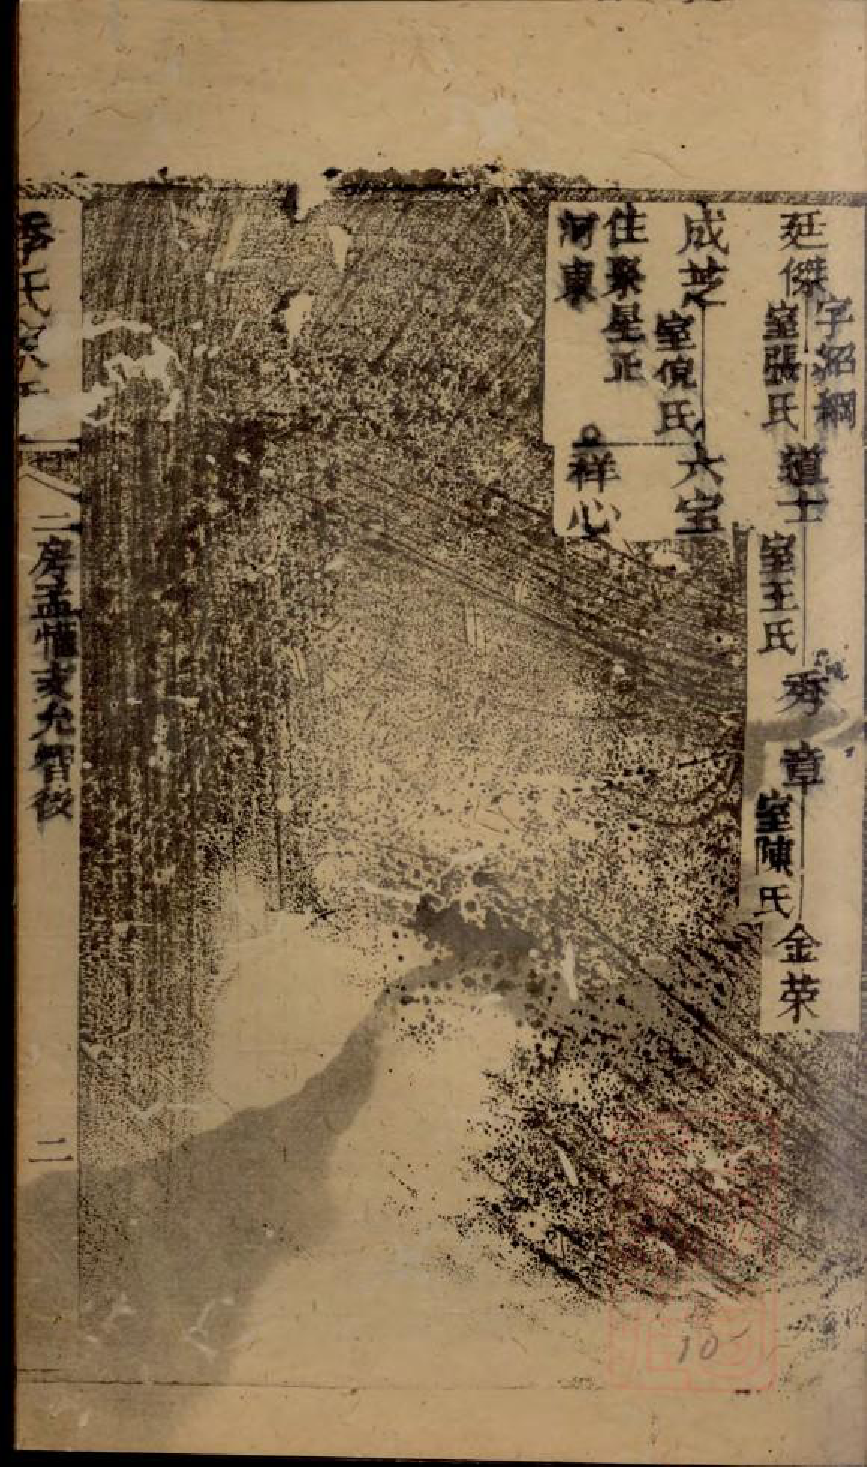 延傑
字紹綱
室張氏
道士
室王氏
秀章
室陳氏
金荣
成芝
室倪氏
六宝
住聚星正
河東
祥心
二房孟惟支允智後
二
10